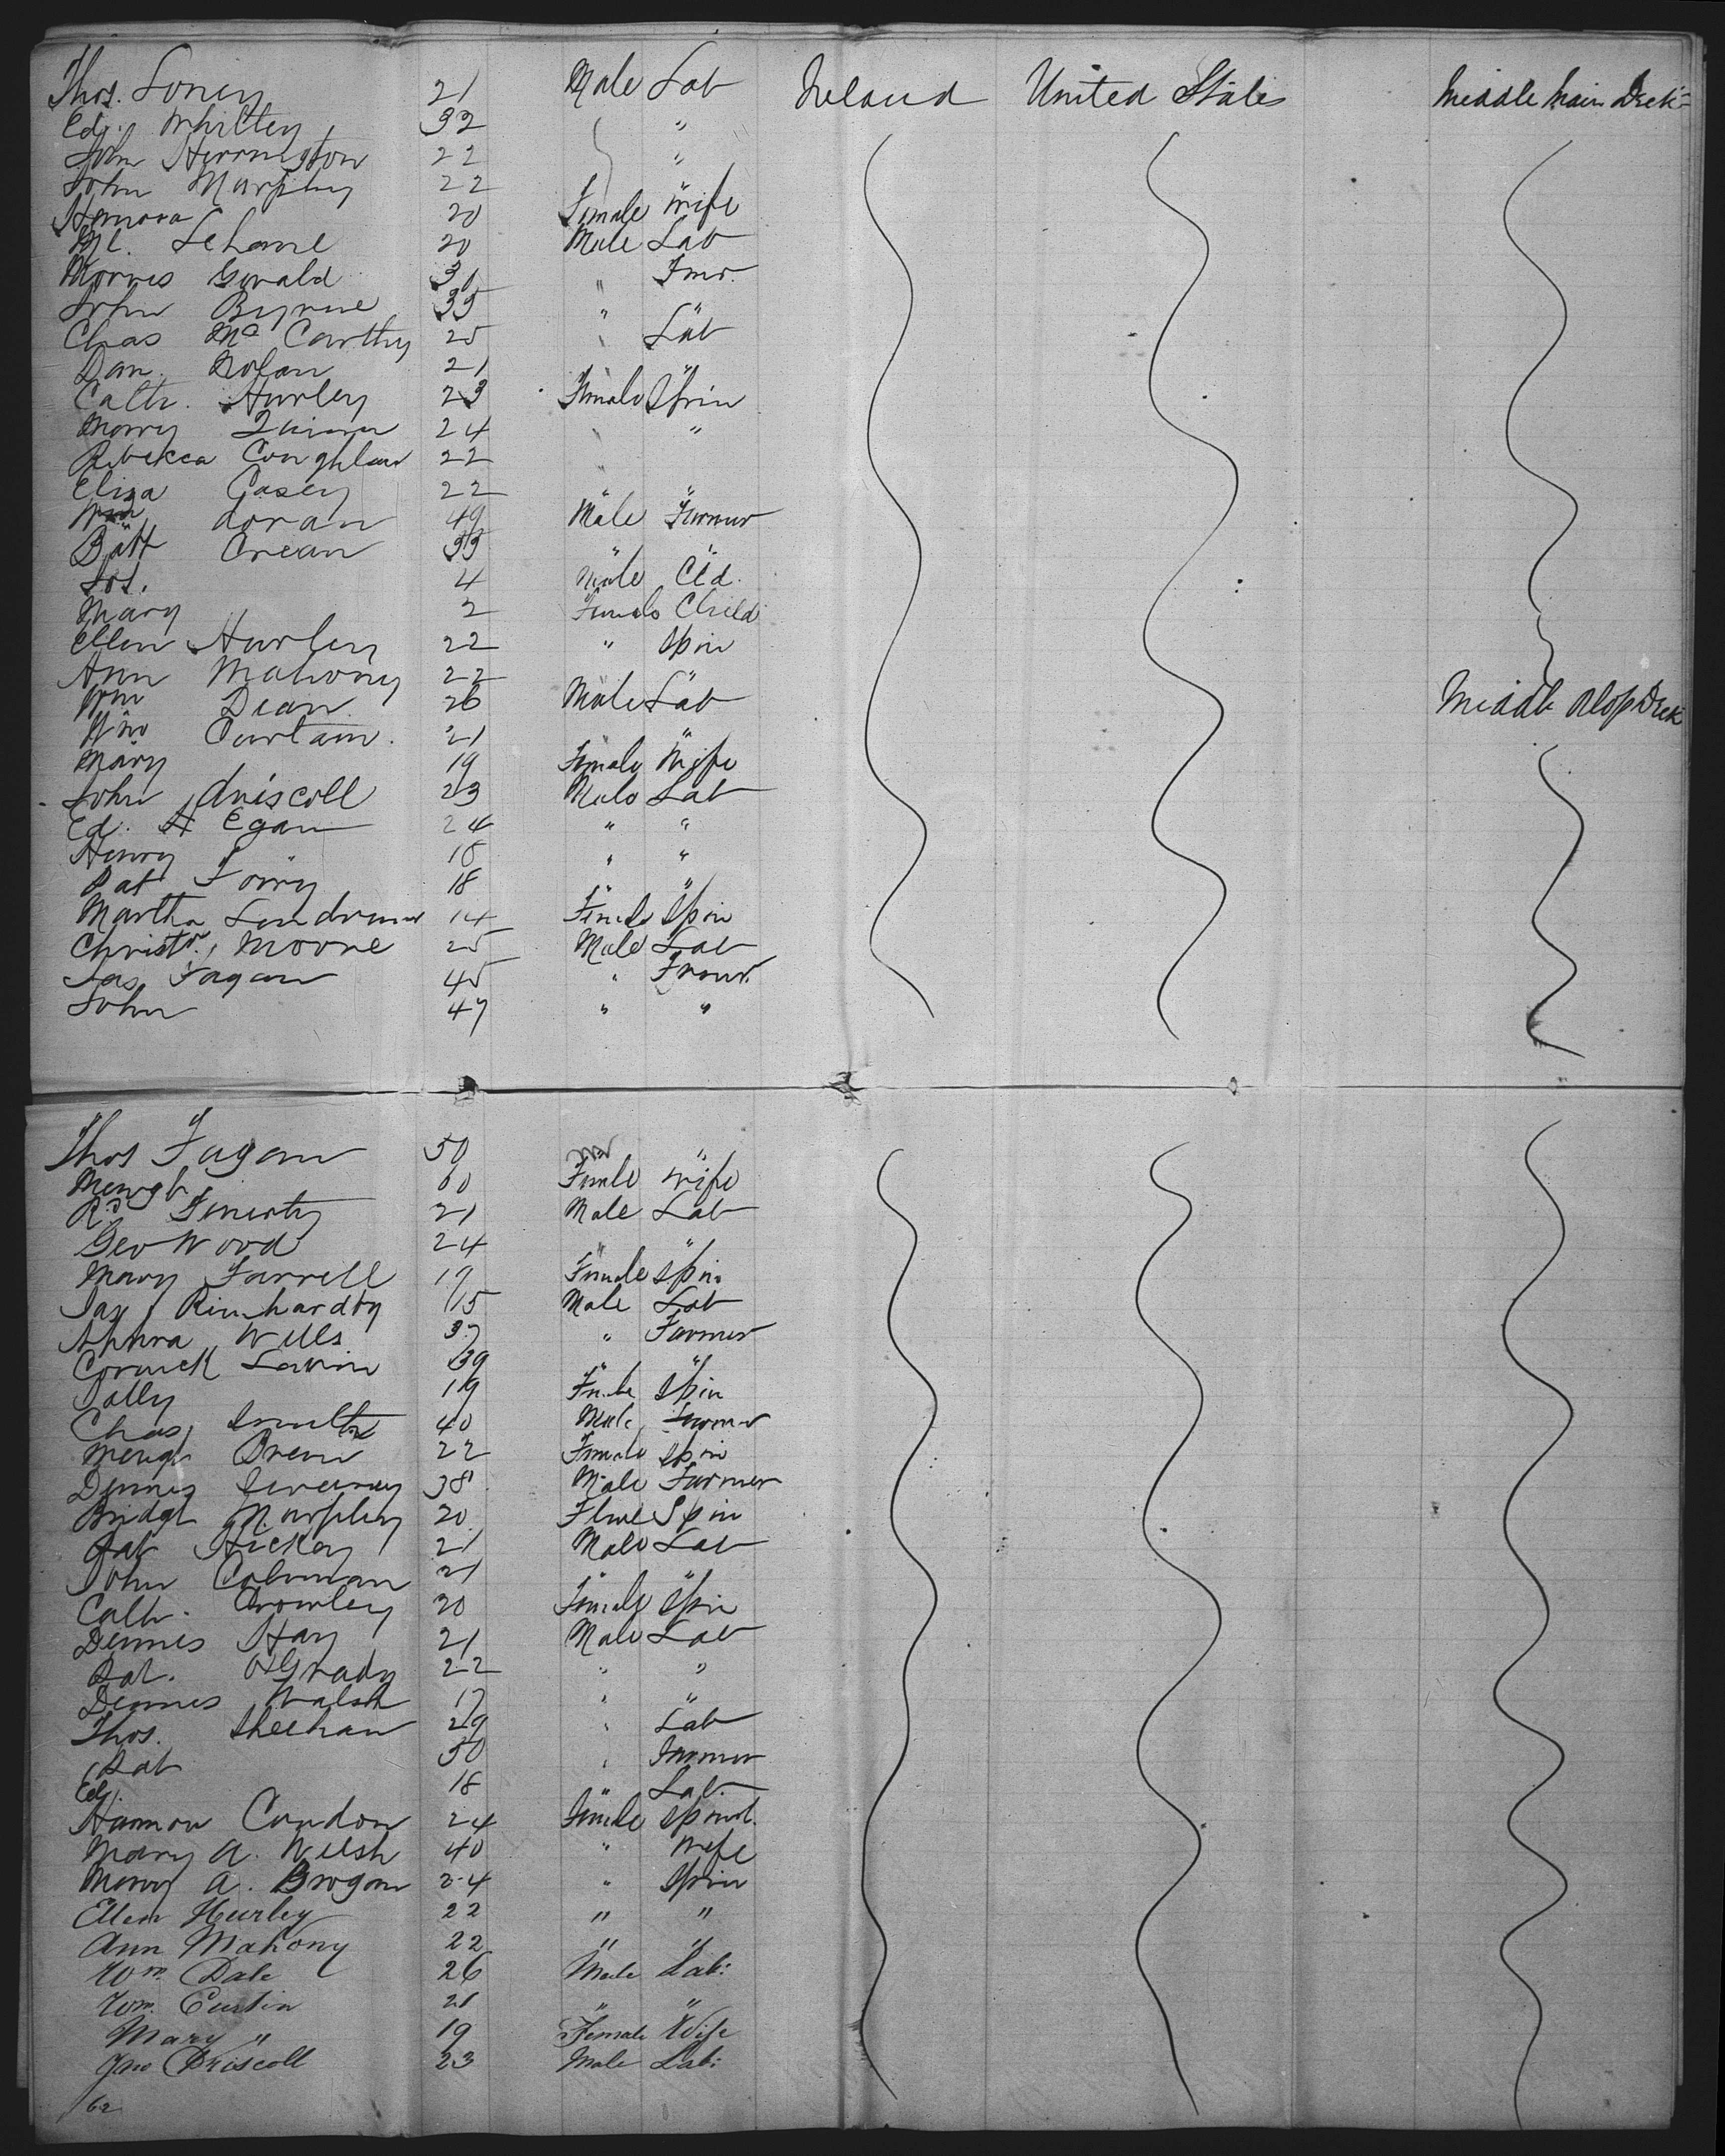 Thos. Loney 21 Male Lab Ireland United States Middle Main Deck
Ed. Whiltey 32 "
John Herrington 22 "
John Murphy 22
Honora 20 Female Wife
Ml. Lehane 20 Male Lab
Morris Gerald 31 " Fmr.
John Byrne 35 " "
Chas Mc Carthy 25 " Lab
Dan. Nolan 21 "
Cath. Hurley 23 Female Spin
Mary Quinn 24 " "
Rebekca Coughlan 22 "
Eliza Casey 22 " "
Wm doran 49 Male Farmer
Batt Crean 33 " "
4 Male Cld.
Mary 2 Female Child
Ellen Hurley 22 " Spin
Ann Mahony 22 " "
Wm Dean 26 Male Lab Middle Alop Deck
Wm Curtain. 21 "
Mary 19 Female Wife
John driscoll 23 Male Lab
Ed. H Egan 24 " "
Henry " 18 " "
Pat Foiry 18 "
Martha 14 Female Spin
Christr. Moore 25 Male Lab
Jas Fagan 45 " Frmr.
John 47 " "
Thos Fagan 50 "
Margt 60 Female wife
Rd Finerty 21 Male Lab
Geo Wood 24 " "
Mary Farrell 19 Female Spin
Jas Rinhardty 15 Male Lab
Wells 37 " Farmer
Cormick Lavin 39 " "
Sally 19 Fmle Spin
Chas Smith 40 Male Farmer
Margt 22 Female Spin
Dennis 38 Male Farmer
Bridgt Murphy 20 Flme Spin
Pat Hickey 21 Male Lab
John Colvman 21 " "
Cath. Crowley 20 Female Spin
Dennis Hay 21 Male Lab
Pat. O'Grady 22 " "
Dennis Walsh 17 " "
Thos. Sheehan 29 " Lab
Pat 50 " Farmer
Ed. 18 Lab
Hannon Condon 24 Female
Mary A. Welsh 40 " Wife
Mary A. Brogan 24 " Spin
Ellen Hurley 22 " "
Ann Mahony 22 " "
Wm Dale 26 Male Lab:
Wm. Curtin 21 " "
Mary " 19 Female Wife
Jno Driscoll 23 Male Lab:
62